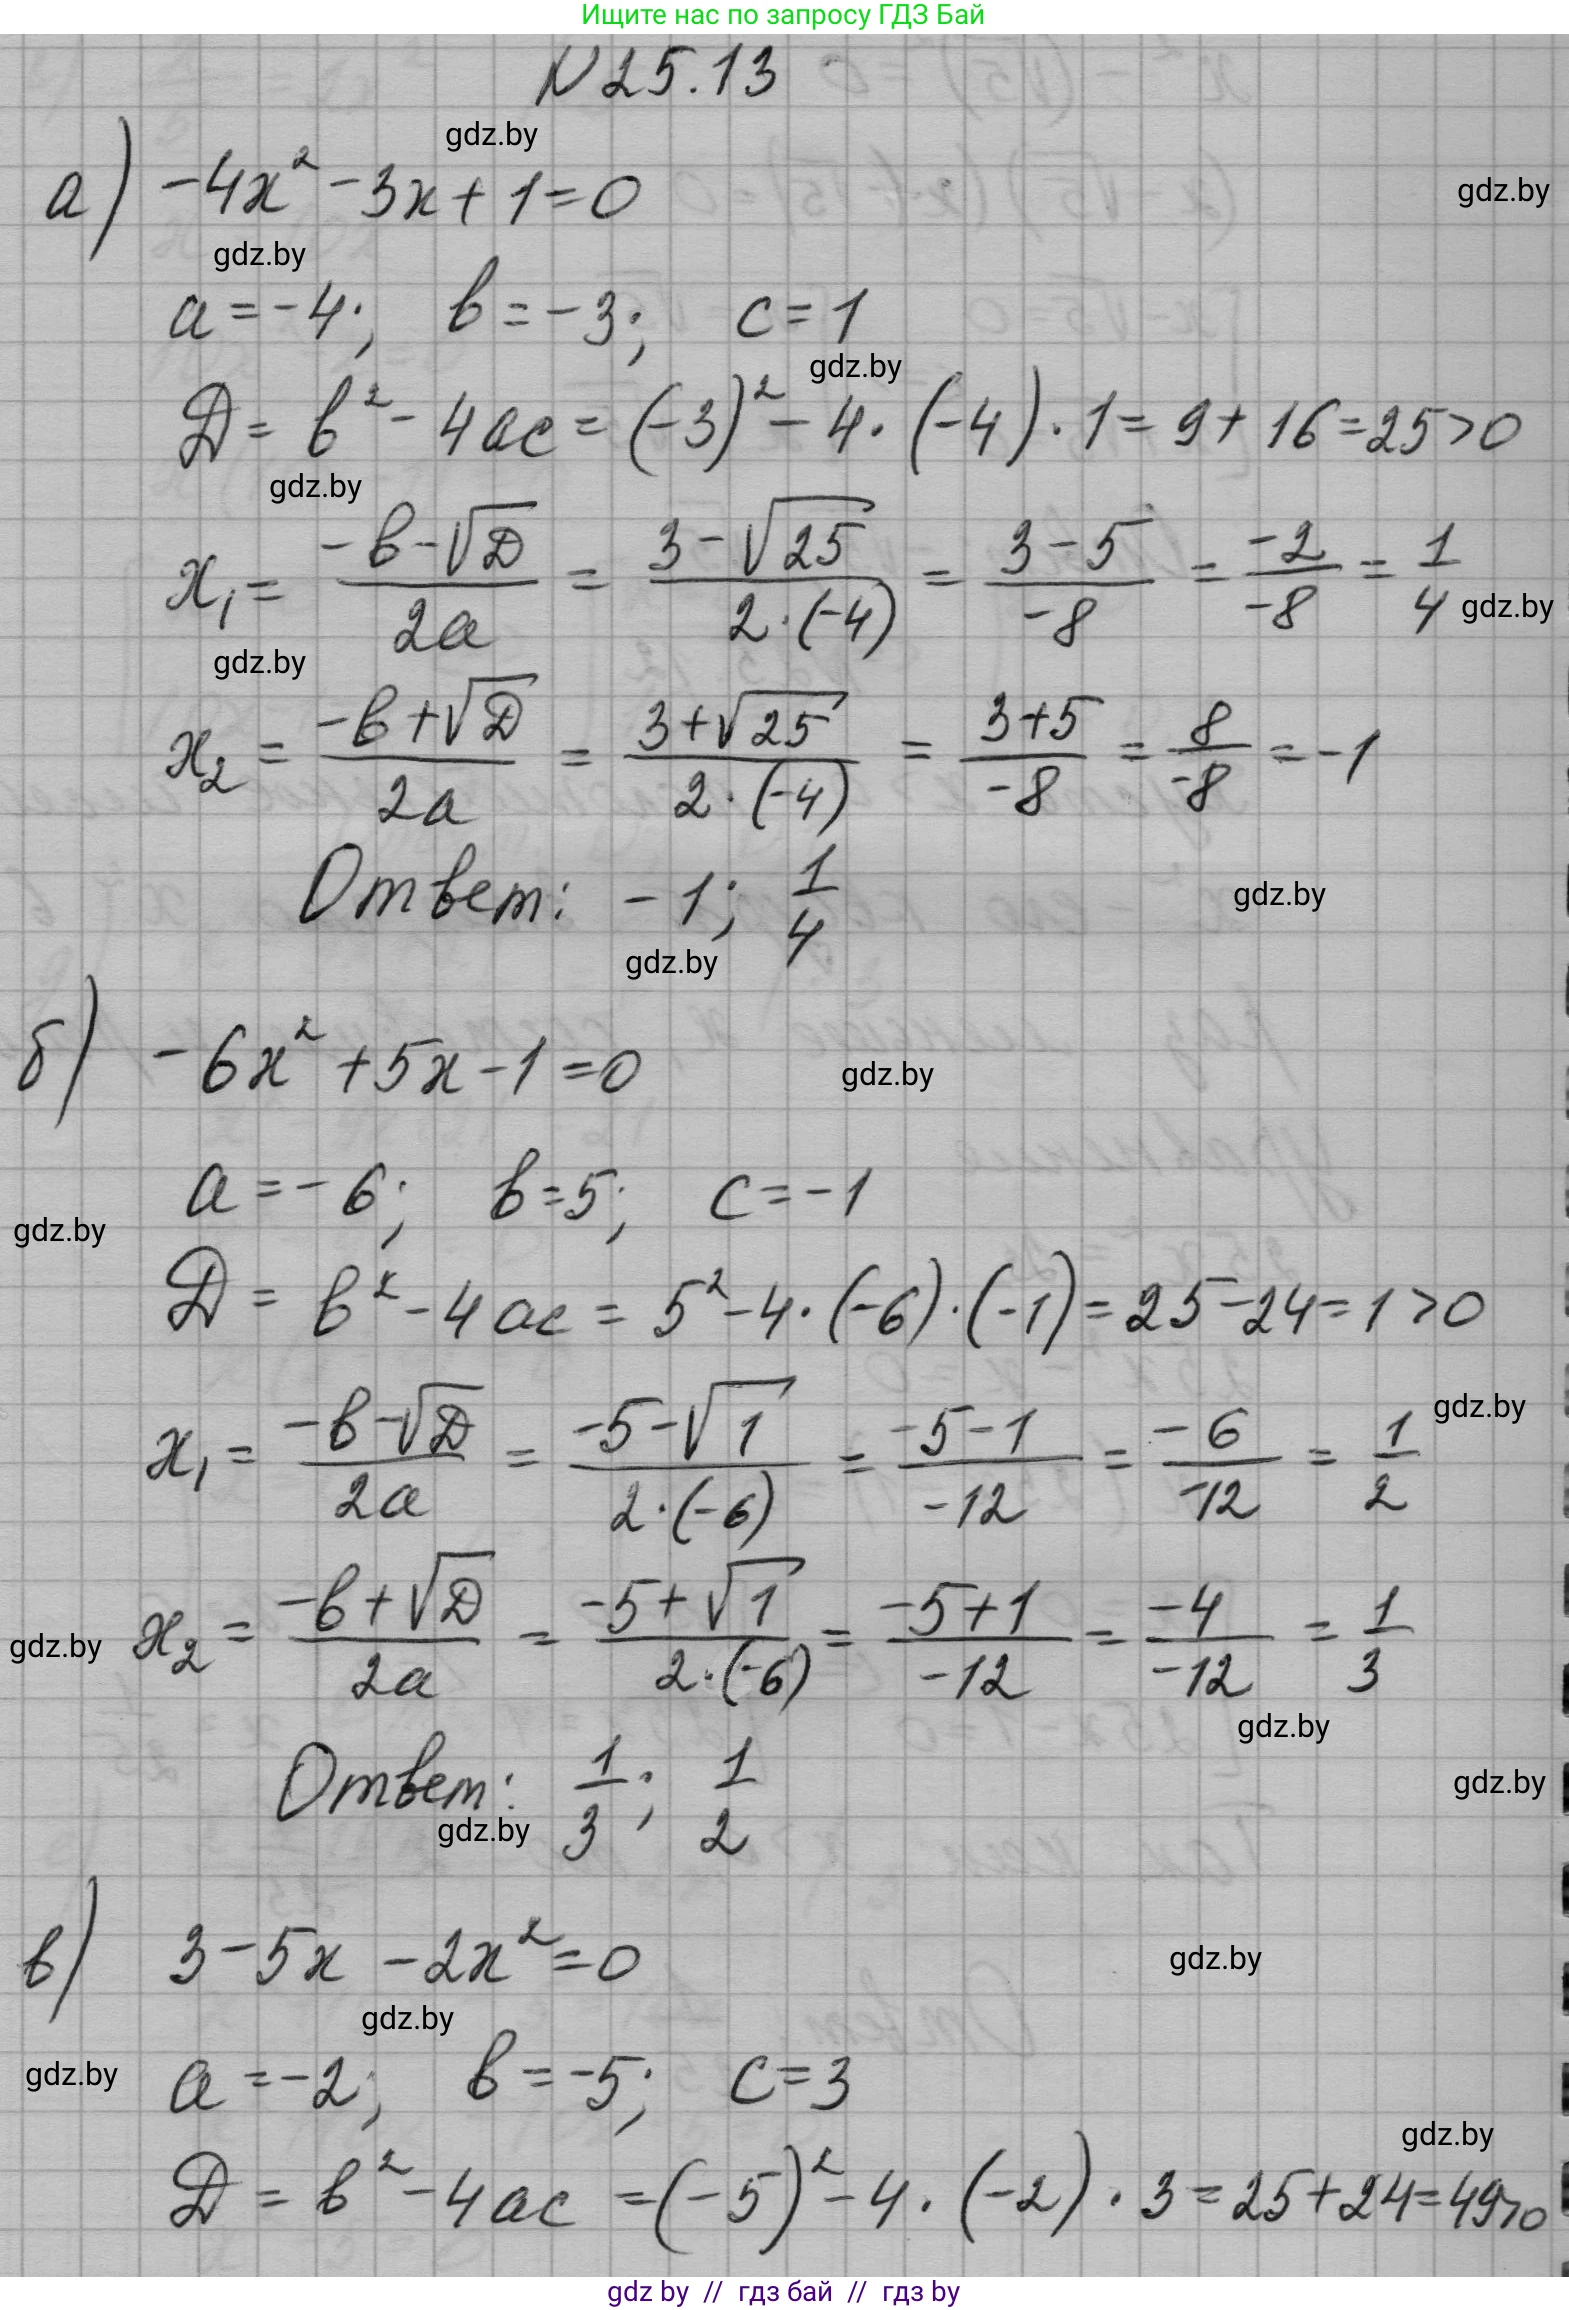 Ищите нас по запросу ГДЗ Бай
N 25.13
gdz.by
а) -4x² - 3x + 1 = 0
gdz.by
gdz.by
a = -4; b = -3; c = 1
gdz.by
D = b² - 4ac = (-3)² - 4 · (-4) · 1 = 9 + 16 = 25 > 0
gdz.by
x₁ = (-b - √D)/(2a) = (3 - √25)/(2 · (-4)) = (3 - 5)/(-8) = (-2)/(-8) = 1/4
gdz.by
gdz.by
x₂ = (-b + √D)/(2a) = (3 + √25)/(2 · (-4)) = (3 + 5)/(-8) = 8/(-8) = -1
Ответ: -1; 1/4
gdz.by
gdz.by
б) -6x² + 5x - 1 = 0
gdz.by
a = -6; b = 5; c = -1
gdz.by
D = b² - 4ac = 5² - 4 · (-6) · (-1) = 25 - 24 = 1 > 0
gdz.by
x₁ = (-b - √D)/(2a) = (-5 - √1)/(2 · (-6)) = (-5 - 1)/(-12) = (-6)/(-12) = 1/2
gdz.by
x₂ = (-b + √D)/(2a) = (-5 + √1)/(2 · (-6)) = (-5 + 1)/(-12) = (-4)/(-12) = 1/3
gdz.by
gdz.by
Ответ: 1/3; 1/2
gdz.by
в) 3 - 5x - 2x² = 0
gdz.by
gdz.by
gdz.by
a = -2; b = -5; c = 3
gdz.by
D = b² - 4ac = (-5)² - 4 · (-2) · 3 = 25 + 24 = 49 > 0
gdz by // гдз бай // гдз by